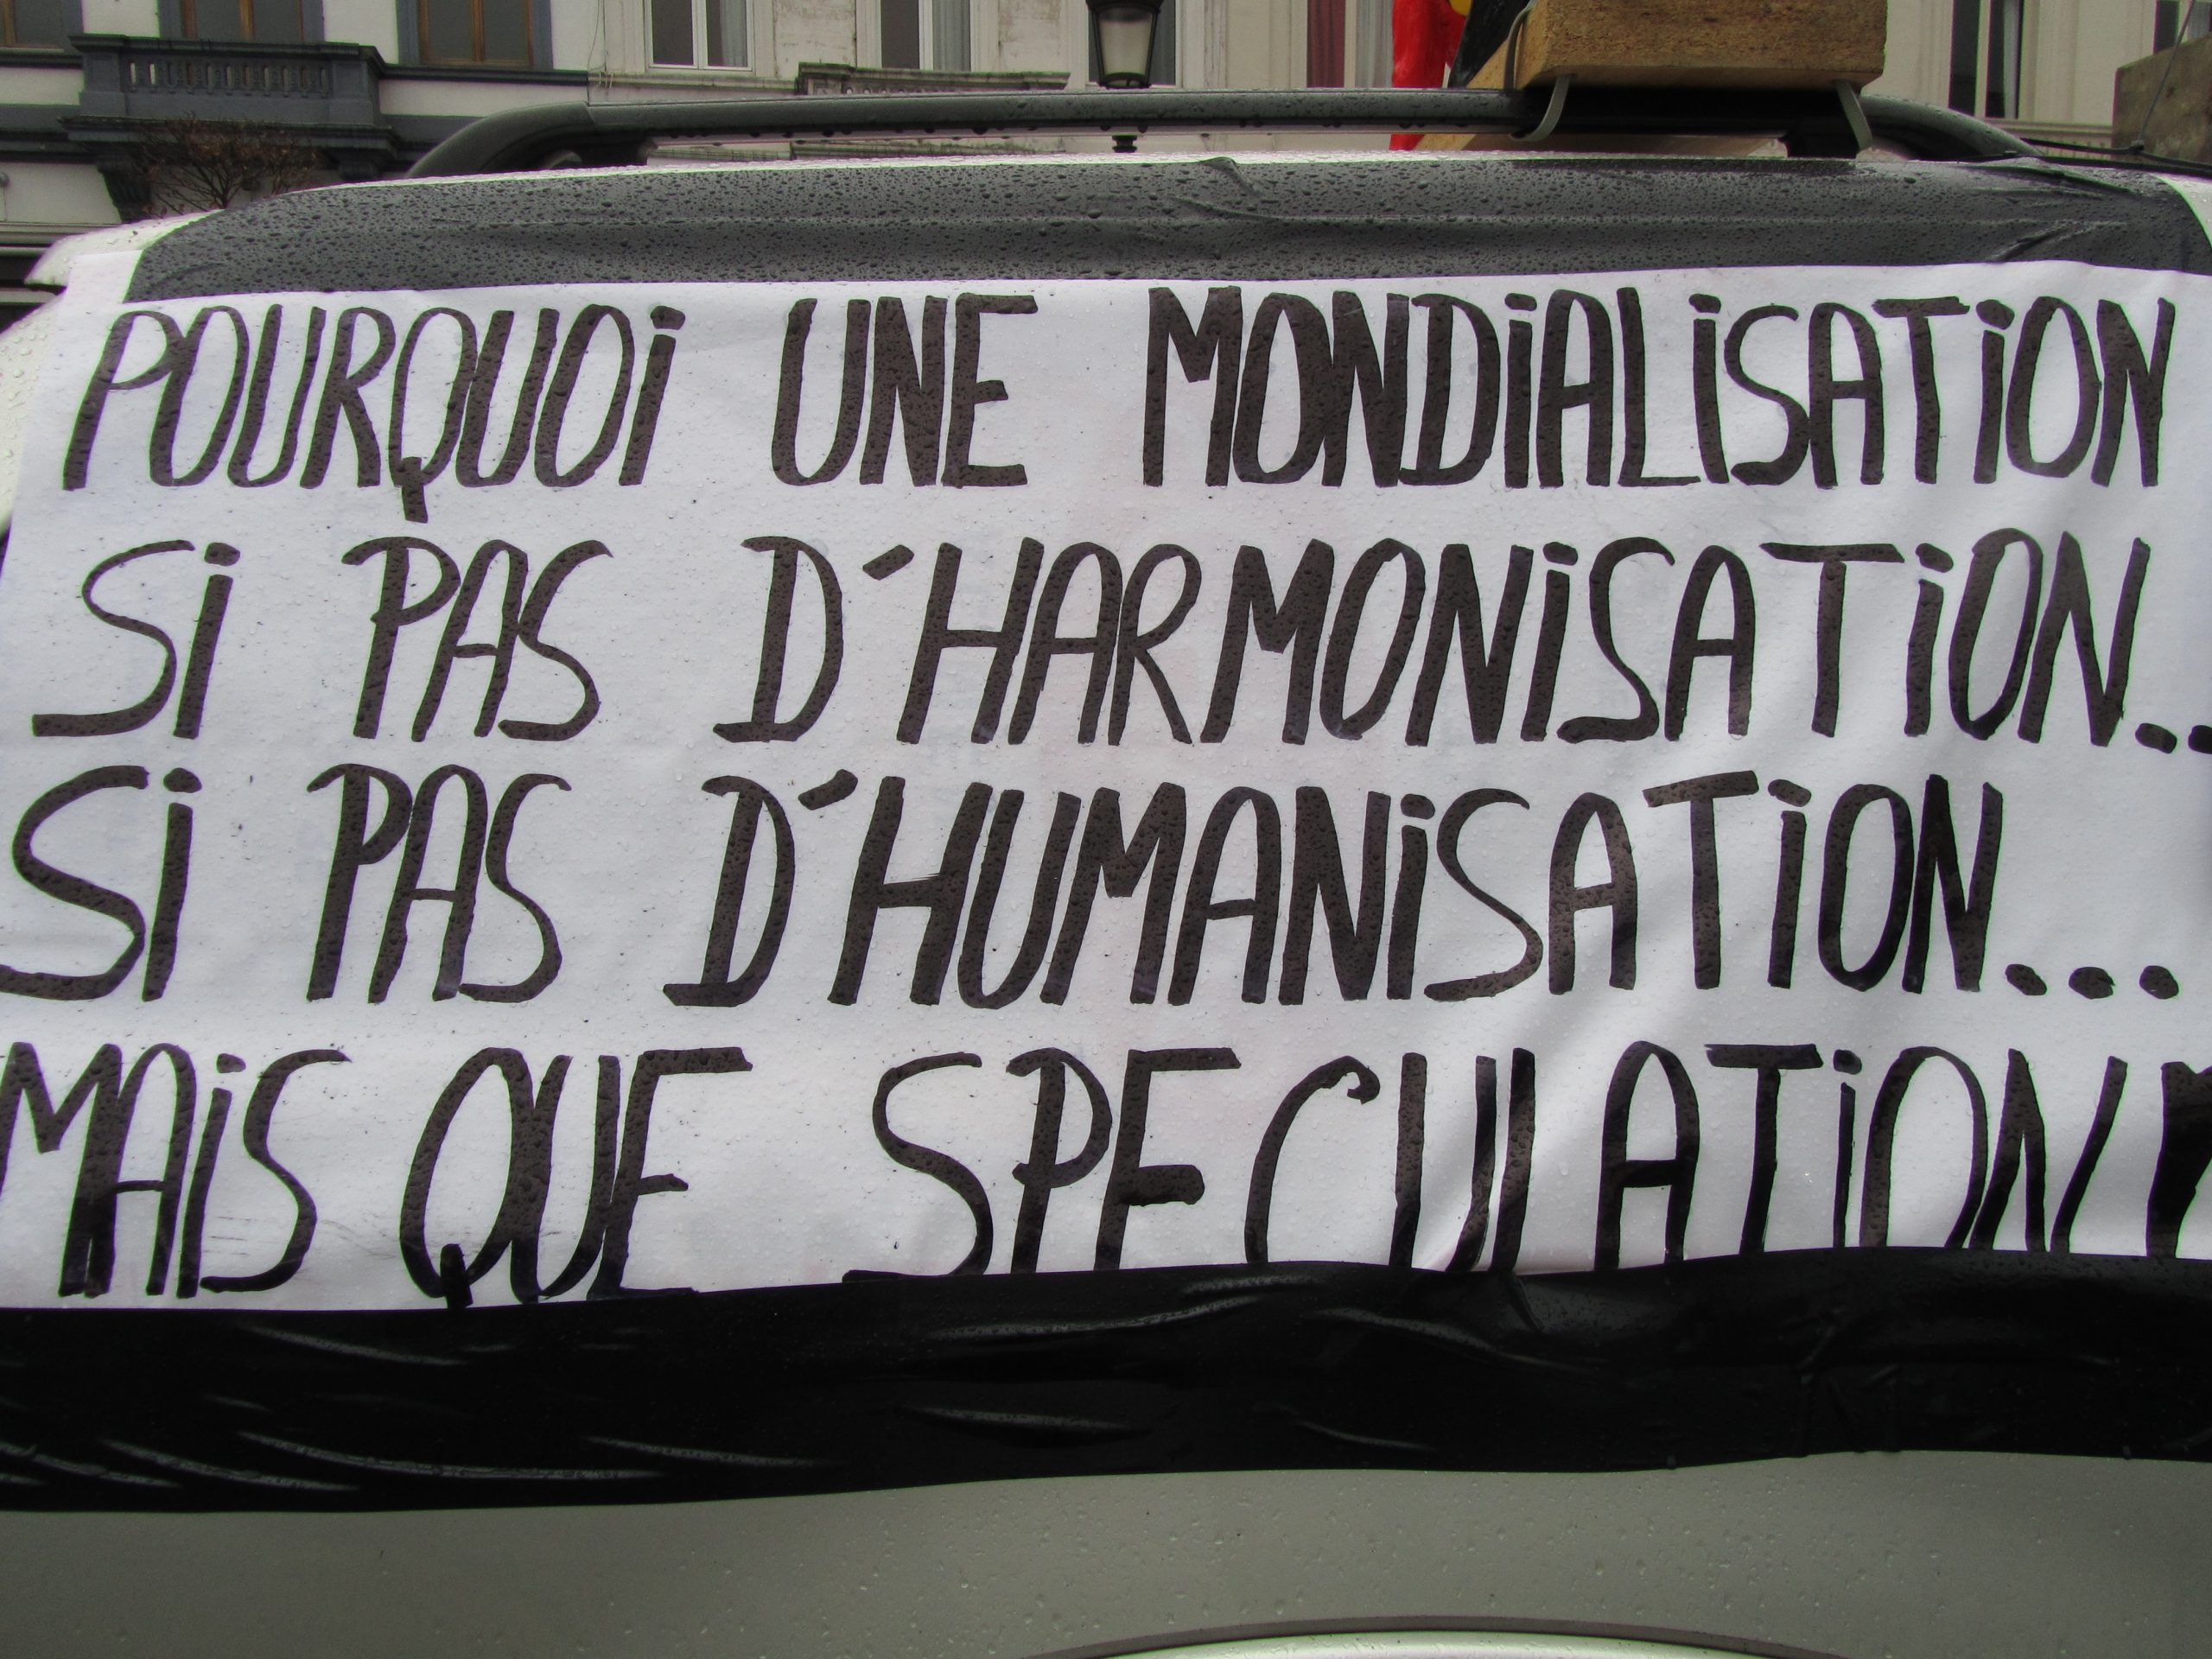 POURQUOI UNE MONDIALISATION
SI PAS D'HARMONISATION..
SI PAS D'HUMANISATION...
MAIS QUE SPECULATION!